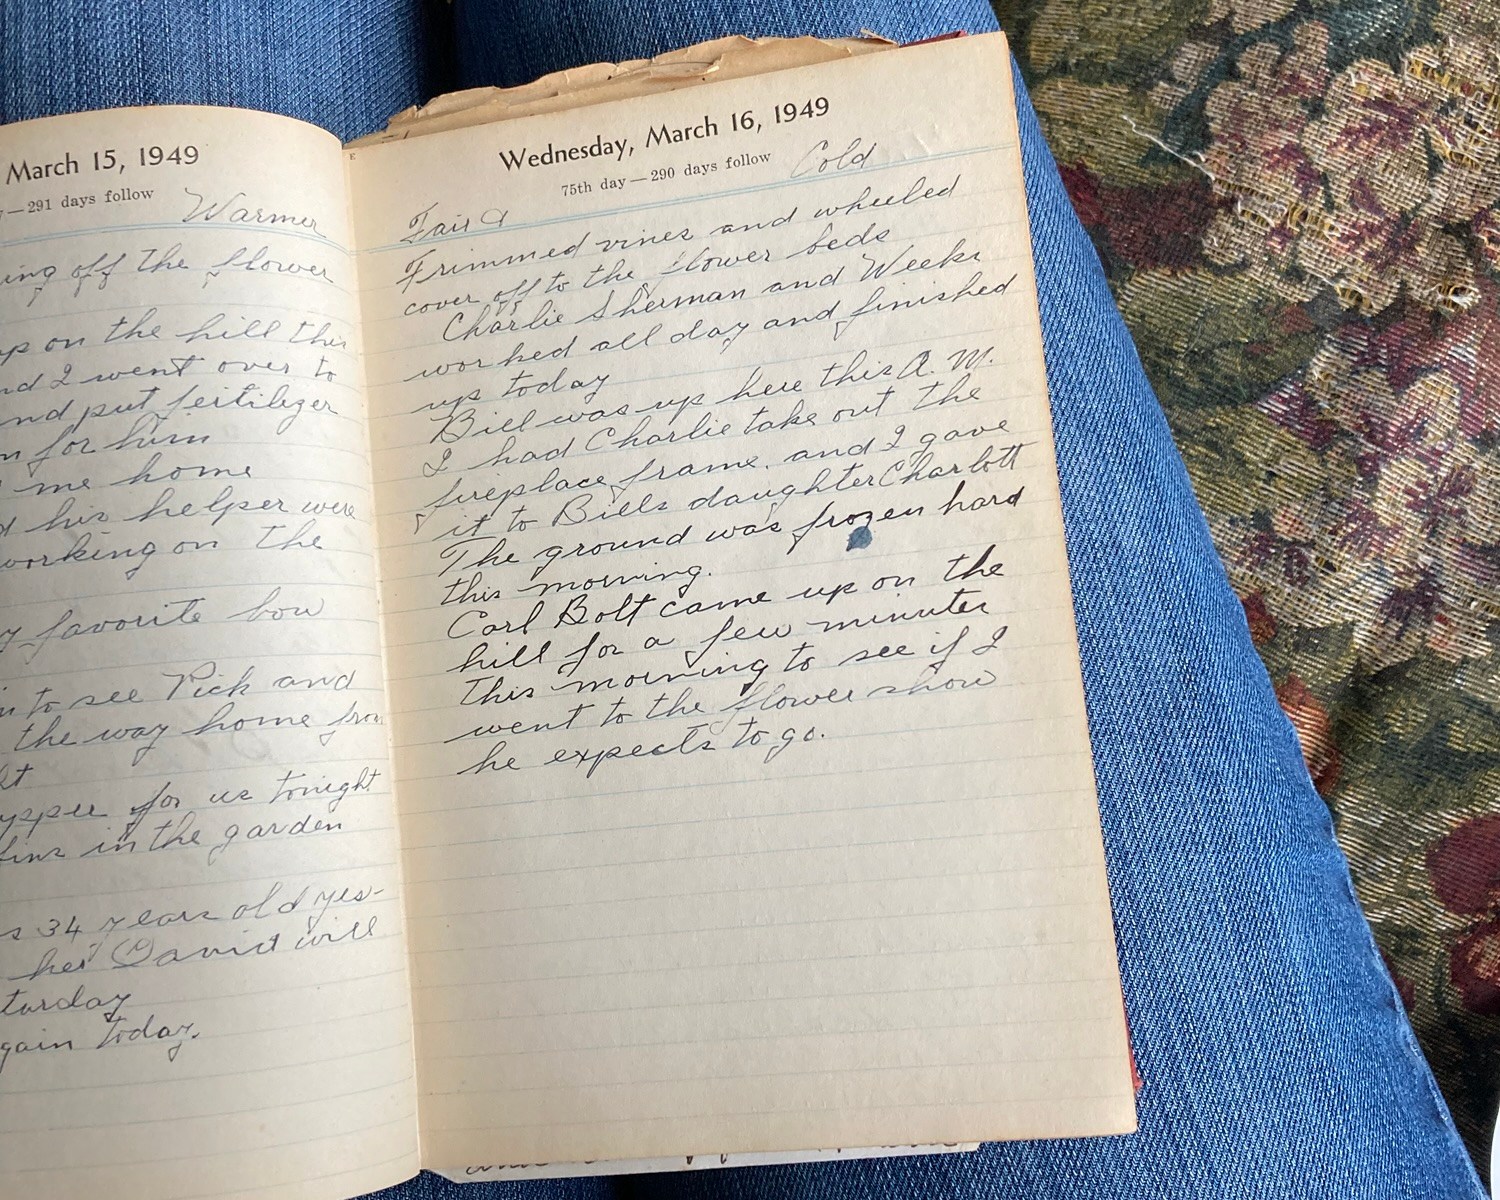 March 15, 1949
—291 days follow
Warmer
ing off the flower
up on the hill this
nd I went over to
nd put fertilizer
n for him
me home
d his helper were
working on the
y favorite bow
n to see Pick and
the way home from
ht
upper for us tonight
in the garden
s 34 years old yes-
her David will
turday
gain today.
Wednesday, March 16, 1949
75th day—290 days follow
Fair
Cold
Trimmed vines and wheeled
cover off to the flower beds
Charlie Sherman and Weeks
worked all day and finished
up today
Bill was up here this A. M.
I had Charlie take out the
fireplace frame. and I gave
it to Bills daughter Charlott
The ground was frozen hard
this morning.
Carl Bolt came up on the
hill for a few minutes
this morning to see if I
went to the flower show
he expects to go.